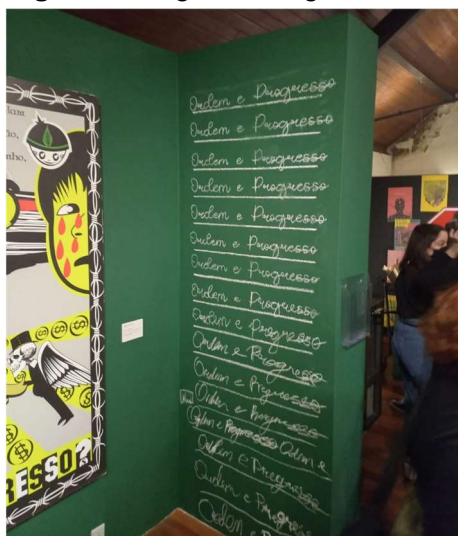 lam
ão,
nho,
ESSO?
Ordem e Progresso
Ordem e Progresso
Ordem e Progresso
Ordem e Progresso
Ordem e Progresso
Ordem e Progresso
Ordem e Progresso
Ordem e Progresso
Ordem e Progresso
Ordem e Progresso
Ordem e Progresso
Ordem e Progresso
Ordem e Progresso Ordem e
Ordem e Progresso
Ordem e Progresso
Ordem e